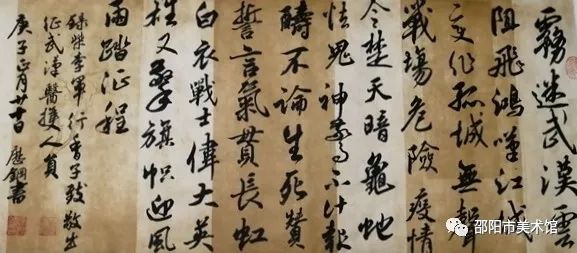 霧迷武漢雲
阻飛鴻嘆江城
又作孤城無聲
戰場危險疫情
令楚天暗龜蛇
怯鬼神驚不計報
酬不論生死贊
誓言氣貫長虹
白衣戰士偉大英
雄又擎旗幟迎風
雨踏征程
李軍行香子致敬出
征武漢醫護人員
庚子正月
鋼書
邵阳市美术馆